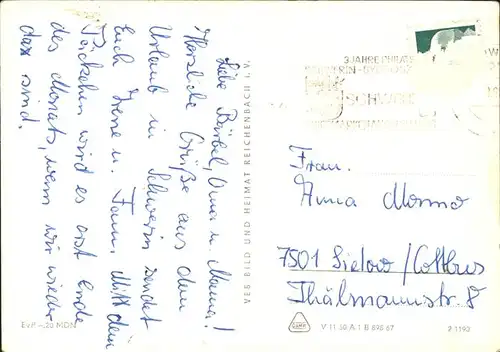 Liebe Bärbel, Oma u. Mama!
Herzliche Grüße aus dem
Urlaub in Schwerin sendet
Euch Irene u. Fam. Mitt dem
Päckchen wird es erst Ende
des Monats, wenn wir wieder
da sind.
VEB BILD UND HEIMAT REICHENBACH i. V.
3 JAHRE PHILAT
SCHWERIN
Frau.
Anna Monno
7501 Sielow/Cottbus
Thälmannstr. 8
EVP -,20 MDN
V 11 50 A 1 B 695 67